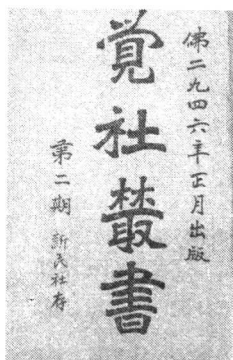 佛二九四六年正月出版
覺社叢書
第二期 新民社存